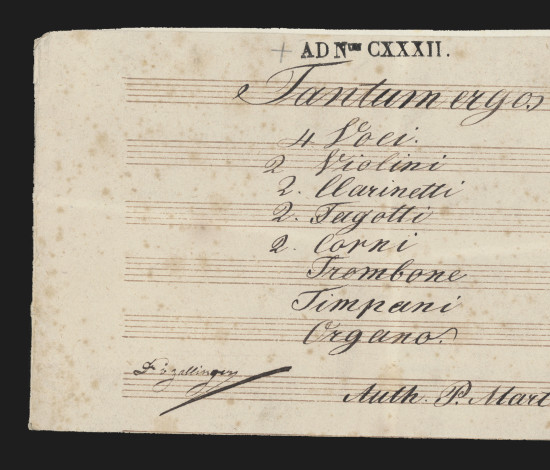 AD Num CXXXII.
Tantum ergos
4 Voci.
2 Violini
2. Clarinetti
2. Fagotti
2. Corni
Trombone
Timpani
Organo.
Auth. P. Mart